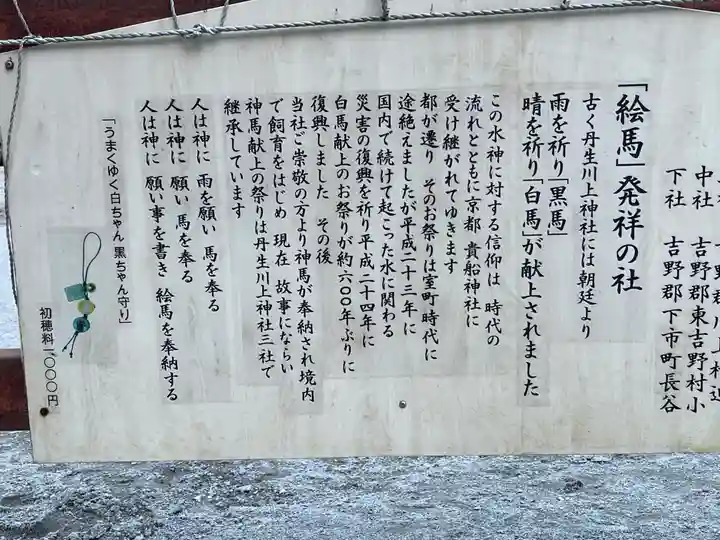 中社 吉野郡東吉野村小
下社 吉野郡下市町長谷
「絵馬」発祥の社
古く丹生川上神社には朝廷より
雨を祈り「黒馬」
晴を祈り「白馬」が献上されました
この水神に対する信仰は 時代の
流れとともに京都 貴船神社に
受け継がれてゆきます
都が遷り そのお祭りは室町時代に
途絶えましたが平成二十三年に
国内で続けて起こった水に関わる
災害の復興を祈り平成二十四年に
白馬献上のお祭りが約六〇〇年ぶりに
復興しました その後
当社ご崇敬の方より神馬が奉納され境内
で飼育をはじめ 現在 故事にならい
神馬献上の祭りは丹生川上神社三社で
継承しています
人は神に 雨を願い 馬を奉る
人は神に 願い 馬を奉る
人は神に 願い事を書き 絵馬を奉納する
「うまくゆく白ちゃん 黒ちゃん守り」
初穂料一、〇〇〇円